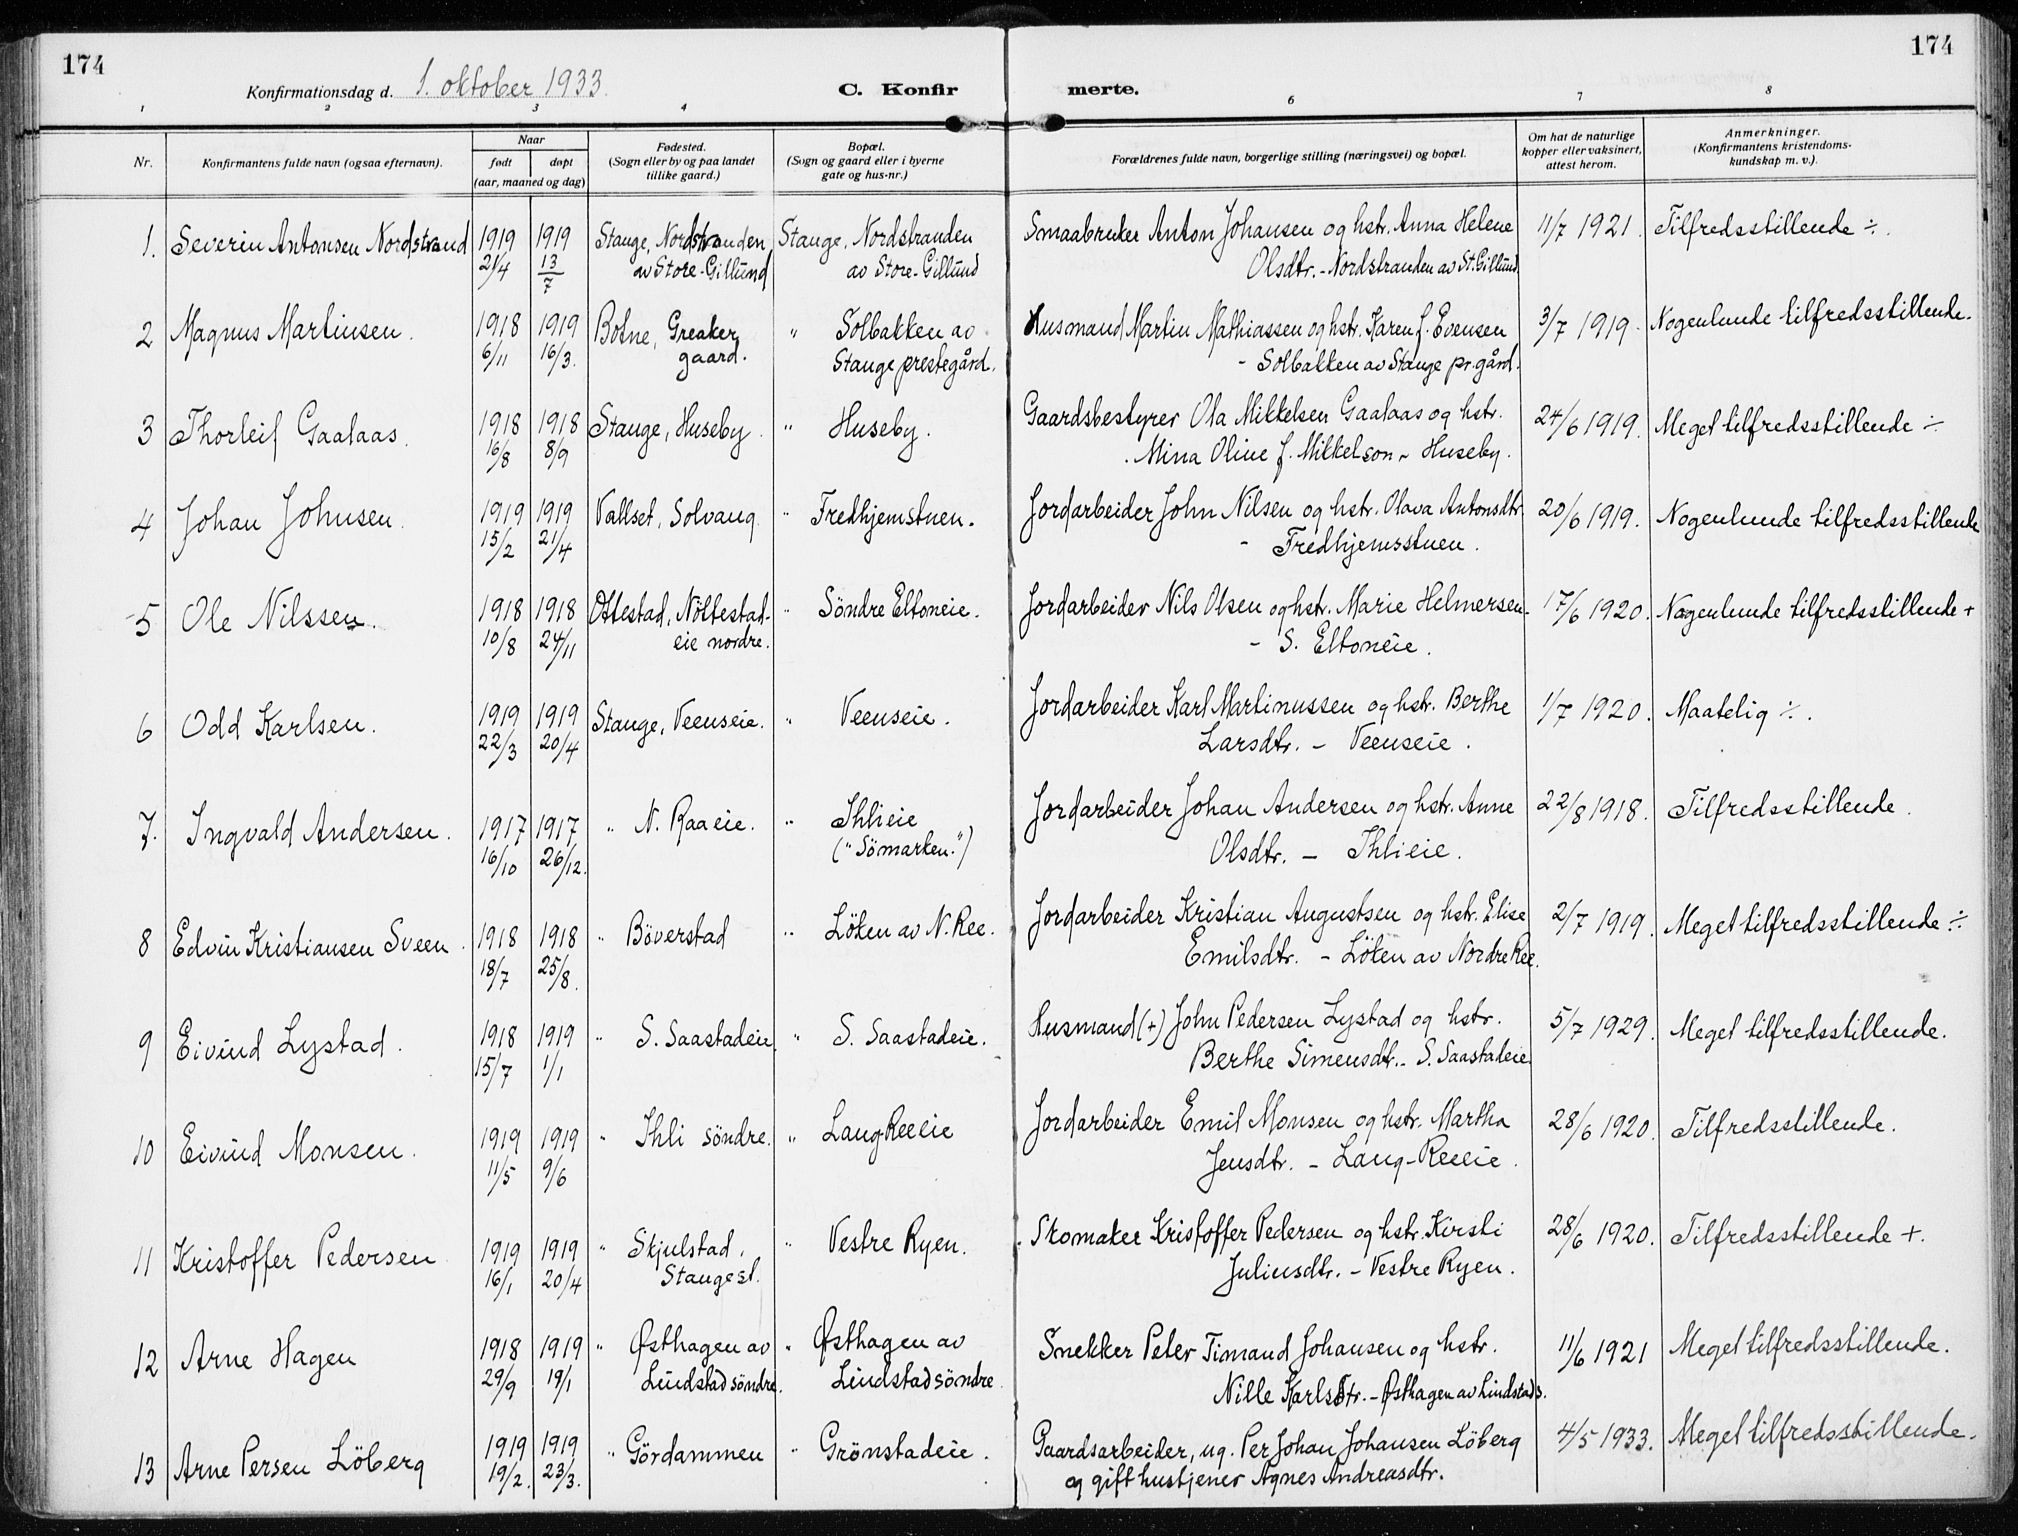 174
174
Konfirmationsdag d. 1. oktober 1933.
C. Konfir merte.
1 2 3 4 6 7 8
Nr.
Konfirmantens fulde navn (ogsaa efternavn).
Naar
født døpt
(aar, maaned og dag)
Fødested.
(Sogn eller by og paa landet
tillike gaard.)
Bopæl.
(Sogn og gaard eller i byerne
gate og hus-nr.)
Forældrenes fulde navn, borgerlige stilling (næringsvei) og bopæl.
Om hat de naturlige
kopper eller vaksinert,
attest herom.
Anmerkninger.
(Konfirmantens kristendoms-
kundskap m. v.).
1. Severin Antonsen Nordstrand 1919 1919 Stange, Nordstranden Stange, Nordstranden Smaabruker Anton Johansen og hstr. Anna Helene 11/7 1921. Tilfredsstillende ÷.
21/4 13/7 av Store-Gillund av Store-Gillund Olsdtr. - Nordstranden av St. Gillund.
2 Magnus Martinsen. 1918 1919 Botne, Greaker " Solbakken av Husmand Martin Mathiassen og hstr. Karen f. Evensen 3/7 1919. Nogenlunde tilfredsstillende.
6/11 16/3. gaard. Stange prestegård. - Solbakken av Stange pr.gård.
3 Thorleif Gaalaas. 1918 1918 Stange, Huseby. " Huseby. Gaardsbestyrer Ola Mikkelsen Gaalaas og hstr. 24/6 1919. Meget tilfredsstillende ÷
16/8 8/9 Mina Oline f. Mikkelson - Huseby.
4 Johan Johnsen. 1919 1919 Vallset, Solvang " Fredhjemstuen. Jordarbeider John Nilsen og hstr. Olava Antonsdtr 20/6 1919. Nogenlunde tilfredsstillende
15/2 21/4 - Fredhjemsstuen.
5 Ole Nilssen. 1918 1918 Ottestad, Nöttestad- " Söndre Eltoneie. Jordarbeider Nils Olsen og hstr. Marie Helmersen. 17/6 1920. Nogenlunde tilfredsstillende +
10/8 24/11 eie nordre. - S. Eltoneie.
6 Odd Karlsen. 1919 1919 Stange, Veenseie. " Veenseie. Jordarbeider Karl Martinussen og hstr. Berthe 1/7 1920. Maatelig ÷.
22/3 20/4 Larsdtr. - Veenseie.
7. Ingvald Andersen. 1917 1917 " N. Raaeie. " Ihlieie Jordarbeider Johan Andersen og hstr. Anne 22/8 1918. Tilfredsstillende.
16/10 26/12. ("Sömarken.") Olsdtr. - Ihlieie.
8 Edvin Kristiansen Sveen. 1918 1918 " Böverstad " Löken av N. Ree. Jordarbeider Kristian Augustsen og hstr. Elise 2/7 1919. Meget tilfredsstillende ÷
18/7 25/8. Emilsdtr. - Löken av Nordre Ree.
9 Eivind Lystad. 1918 1919 " S. Saastadeie. " S. Saastadeie. Husmand (+) John Pedersen Lystad og hstr. 5/7 1929. Meget tilfredsstillende.
15/7 1/1 Berthe Simensdt. - S. Saastadeie
10 Eivind Monsen. 1919 1919 " Ihli söndre. " Lang Reeeie Jordarbeider Emil Monsen og hstr. Martha 28/6 1920. Tilfredsstillende.
11/5 9/6 Jensdtr. - Lang-Reeeie.
11 Kristoffer Pedersen 1919 1919 " Skjulstad, " Vestre Ryen. Skomaker Kristoffer Pedersen og hstr. Kirsti 28/6 1920. Tilfredsstillende +.
16/1 20/4 Stange st. Juliusdtr. - Vestre Ryen.
12 Arne Hagen 1918 1919 " Østhagen av " Østhagen av Snekker Peter Timand Johansen og hstr. 11/6 1921 Meget tilfredsstillende.
29/9 19/1 Lindstad söndre. Lindstad söndre. Nille Karlsdtr. - Østhagen av Lindstad s.
13 Arne Persen Löberg 1919 1919 " Gördammen " Grönstadeie. Gaardsarbeider, ug. Per Johan Johansen Löberg 4/5 1933. Meget tilfredsstillende.
19/2. 23/3. og gift hustjener Agnes Andreasdtr.